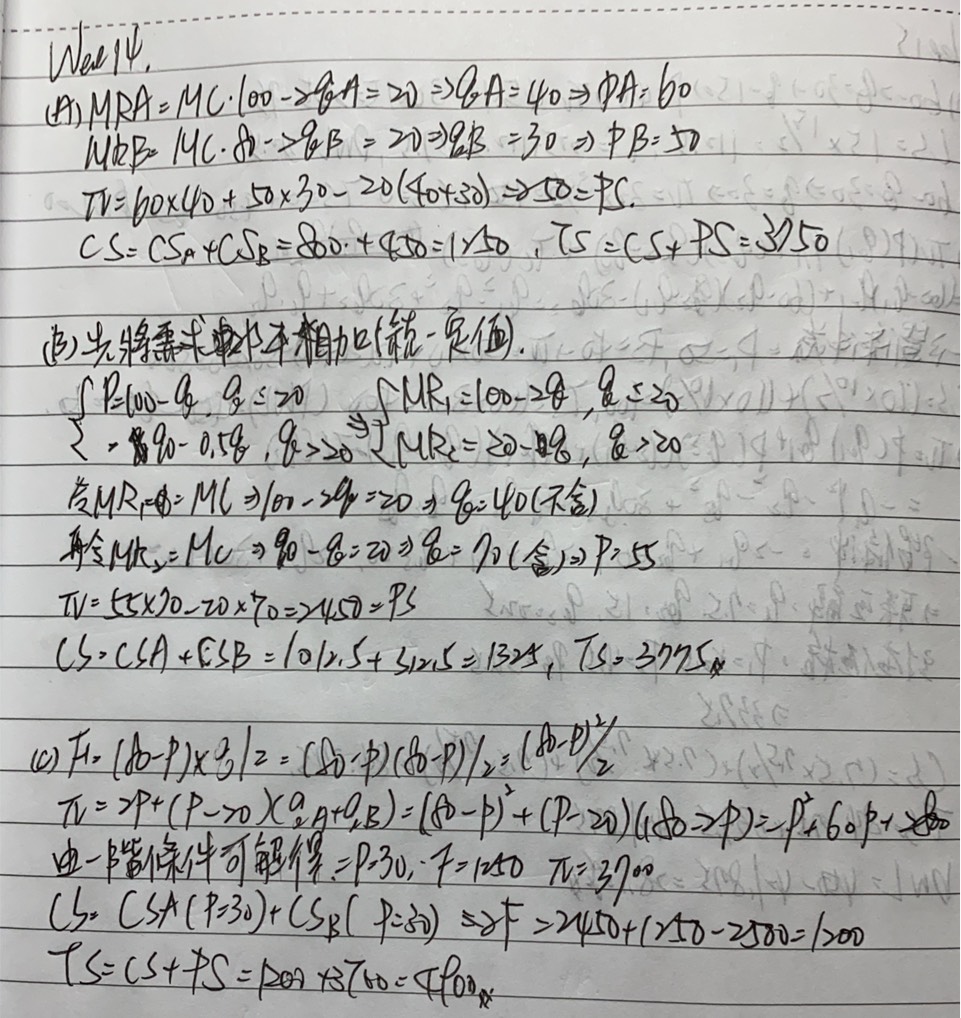 Week 14.
(A) MRA = MC. 100 - 2qA = 20 ⇒ qA = 40 ⇒ PA = 60
MRB = MC. 80 - 2qB = 20 ⇒ qB = 30 ⇒ PB = 50
π = 60×40 + 50×30 - 20(40+30) = 2500 = PS.
CS = CSA + CSB = 800 + 450 = 1250, TS = CS + PS = 3750
(B) 先將需求水平相加(統一定價).
{ P = 100 - q, q ≤ 20 ⇒ { MR1 = 100 - 2q, q ≤ 20
90 - 0.5q, q > 20 MR2 = 90 - q, q > 20
令MR1 = MC ⇒ 100 - 2q = 20 ⇒ q = 40 (不合)
再令MR2 = MC ⇒ 90 - q = 20 ⇒ q = 70 (合) ⇒ P = 55
π = 55×70 - 20×70 = 2450 = PS
CS = CSA + CSB = 1012.5 + 312.5 = 1325, TS = 3775
(c) F = (80-P)×q/2 = (80-P)(80-P)/2 = (80-P)²/2
π = 2F + (P-20)(qA+qB) = (80-P)² + (P-20)(180-2P) = -P² + 60P + 2800
由一階條件可解得 = P = 30, F = 1250 π = 3700
CS = CSA(P=30) + CSB(P=30) - 2F = 2450 + 1250 - 2500 = 1200
TS = CS + PS = 1200 + 3700 = 4900